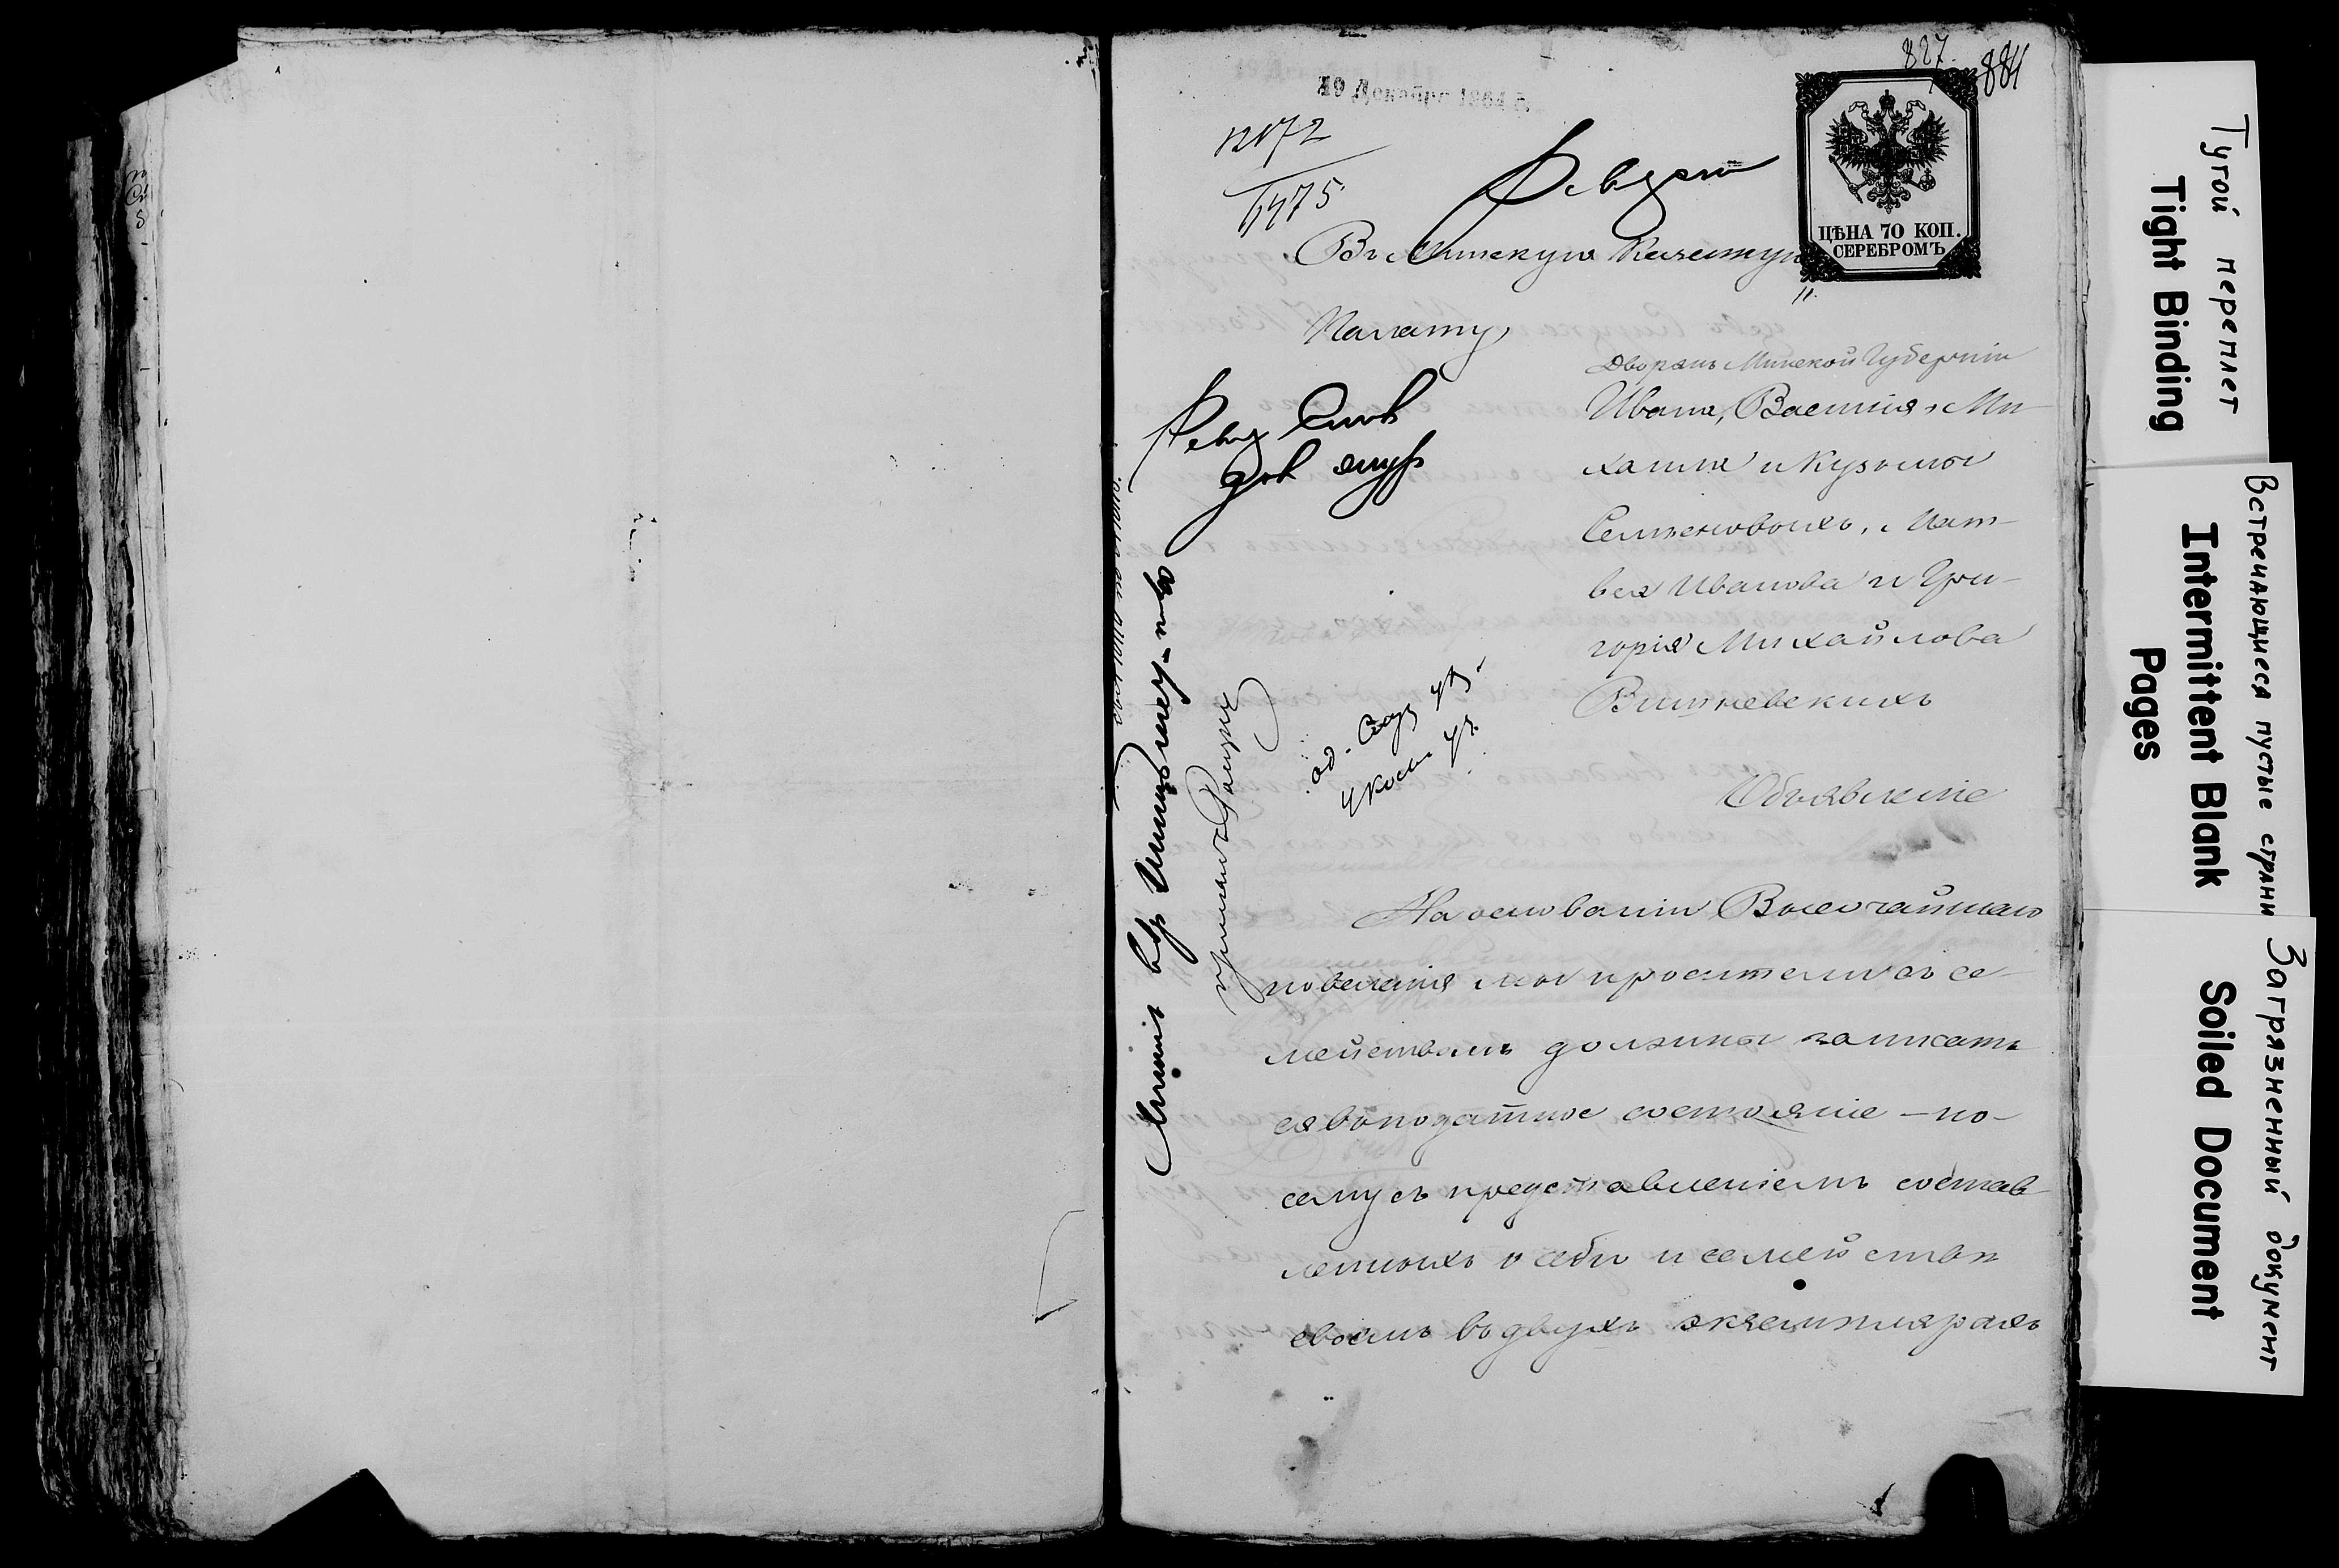 827.
884
19 Декабря 1864 г.
12172
1475
ЦѢНА 70 КОП.
СЕРЕБРОМЪ
Въ Минскую Казенную
Палату,
Дворянъ Минской Губерніи
Ивана, Василія, Ми-
хаила и Кузьмы
Семеновыхъ, Мат-
вея Иванова и Гри-
горія Михайлова
Вишневскихъ
Объявленіе
На основаніи Высочайшаго
повеленія мы просители съ се
мействами должны записать
ся въ податное состояніе – по-
сему съ представленіемъ состав
ленныхъ о себѣ и семействѣ
своемъ въ двухъ экземплярахъ
Тугой переплет
Tight Binding
Встречающиеся пустые страни
Intermittent Blank
Pages
Загрязненный документ
Soiled Document